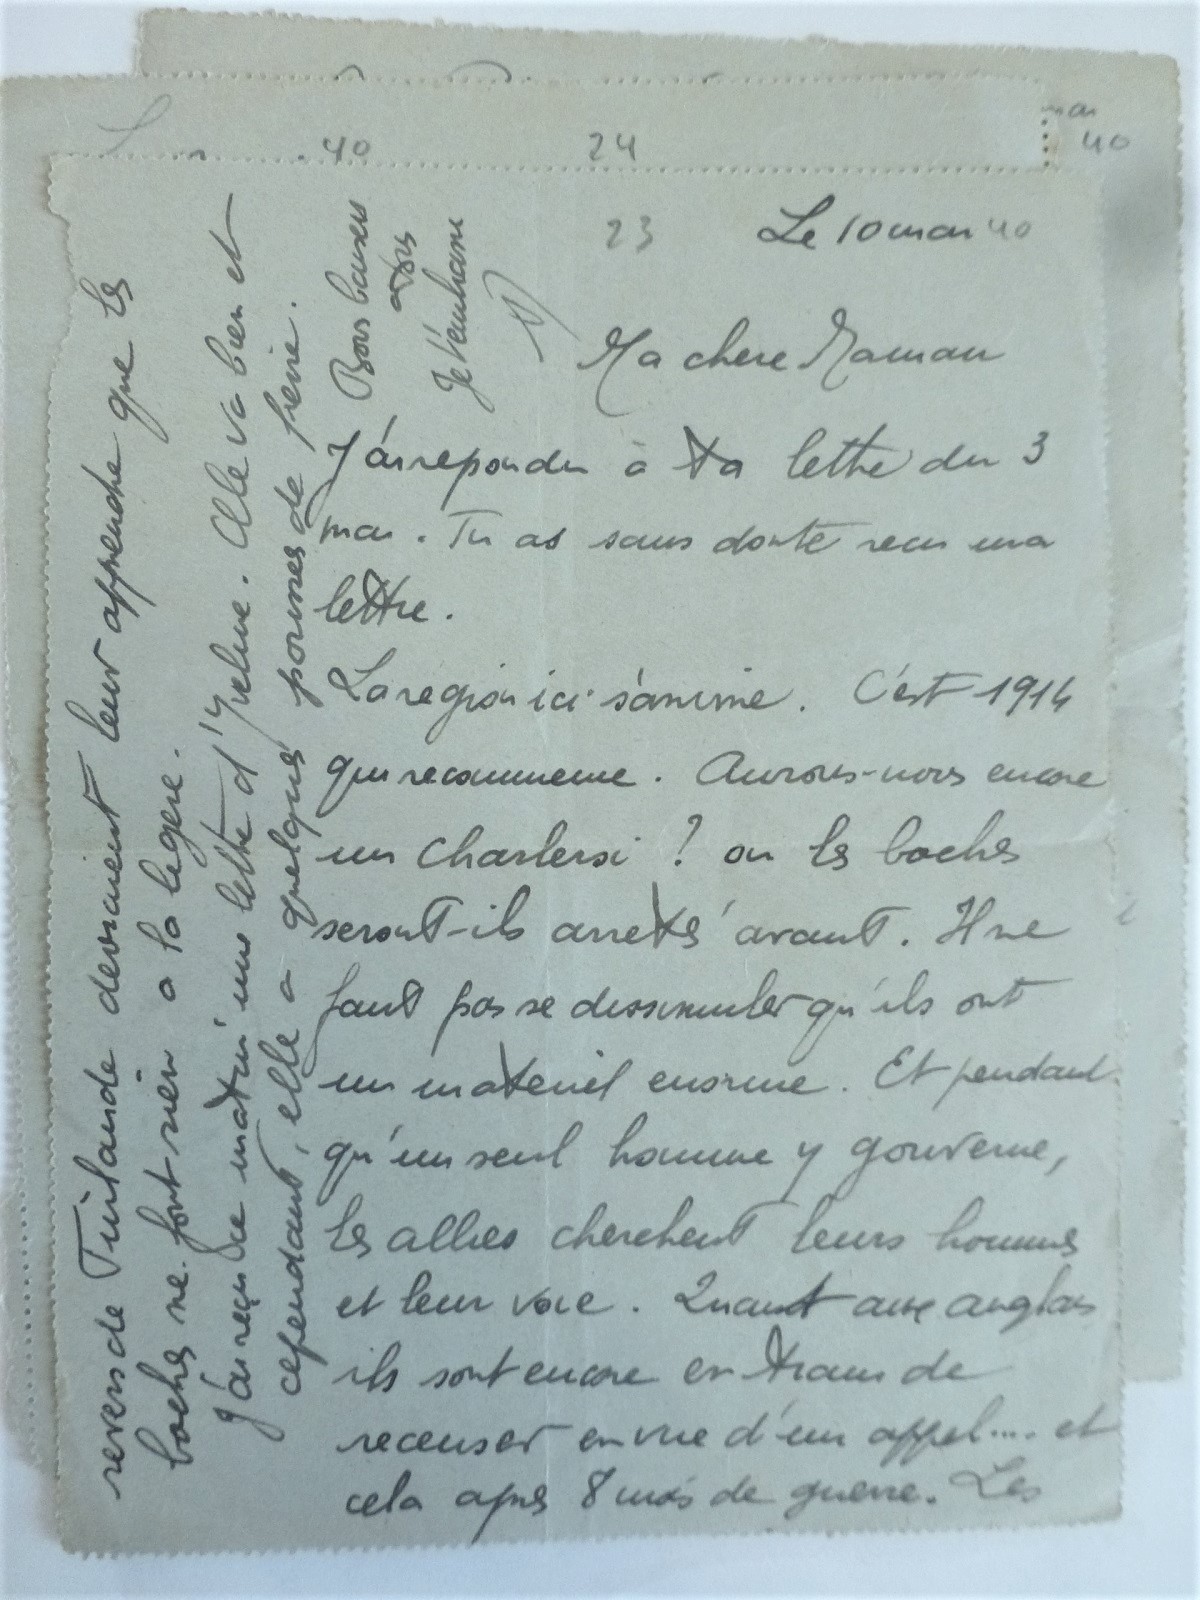 40 24
mai
40
23 Le 10 mai 40
Ma chere Maman
J'ai repondu à ta lettre du 3
mai. Tu as sans doute recu ma
lettre.
La region ici s'anime. C'est 1914
qui recommence. Aurons-nous encore
un Charleroi ? ou les boches
seront-ils arretés avant. Il ne
faut pas se dissimuler qu'ils ont
un materiel enorme. Et pendant
qu'un seul homme y gouverne,
les allies cherchent leurs hommes
et leur voie. Quant aux anglais
ils sont encore en train de
recenser en vue d'un appel.... et
cela apres 8 mois de guerre. Les
revers de Finlande devraient leur apprendre que les
boches ne font rien a la legere.
J'ai reçu ce matin une lettre d'Yveline. Elle va bien et
cependant, elle a quelques poussees de fievre.
Bons baisers
a tous
Je t'embrasse